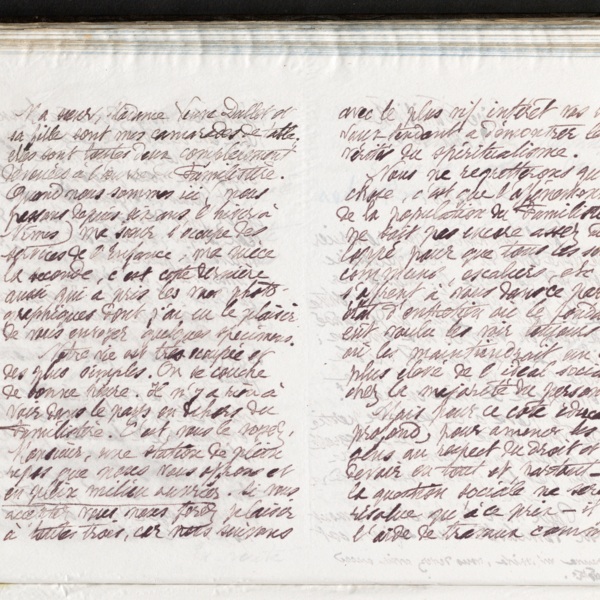 Ma sœur, Madame Veuve Dallet et
sa fille sont mes camarades de
elles sont toutes deux complètement
dévouées à l'œuvre du Familistère.
Quand nous sommes ici, nous
passons depuis dix ans l'hiver à
Nîmes) ma sœur s'occupe des
services de l'Enfance, ma nièce
la seconde, c'est cette dernière
aussi qui a pris les photo-
graphiques dont j'ai eu le plaisir
de vous envoyer quelques spécimens.
Notre vie est très occupée et
des plus simples. On se couche
de bonne heure. Il n'y a rien à
voir dans le pays en dehors du
Familistère. C'est, vous le voyez,
Monsieur, une station de plein
repos que nous vous offrons et
en plein milieu ouvrier. Si vous
acceptez vous nous ferez plaisir
à toutes trois, car nous suivons
avec le plus vif intérêt vos
tendant à démontrer les
vérités du spiritualisme.
Nous ne regretterons qu'
chose, c'est que l'affinement
de la population du Familistère
ne soit pas encore assez
loppé pour que tous les
communs, escaliers, etc
s'offrent à vous dans ce
état d'entretien où le fonda
eut voulu les voir toujours
où les maintiendrait un
plus élevé de l'idéal social
chez la majorité du personnel
Mais pour ce côté
profond, pour amener les
plus au respect du droit et
devoir en tout et partout
la question sociale ne sera
résolue qu'à ce prix - et
l'aide de travaux comme